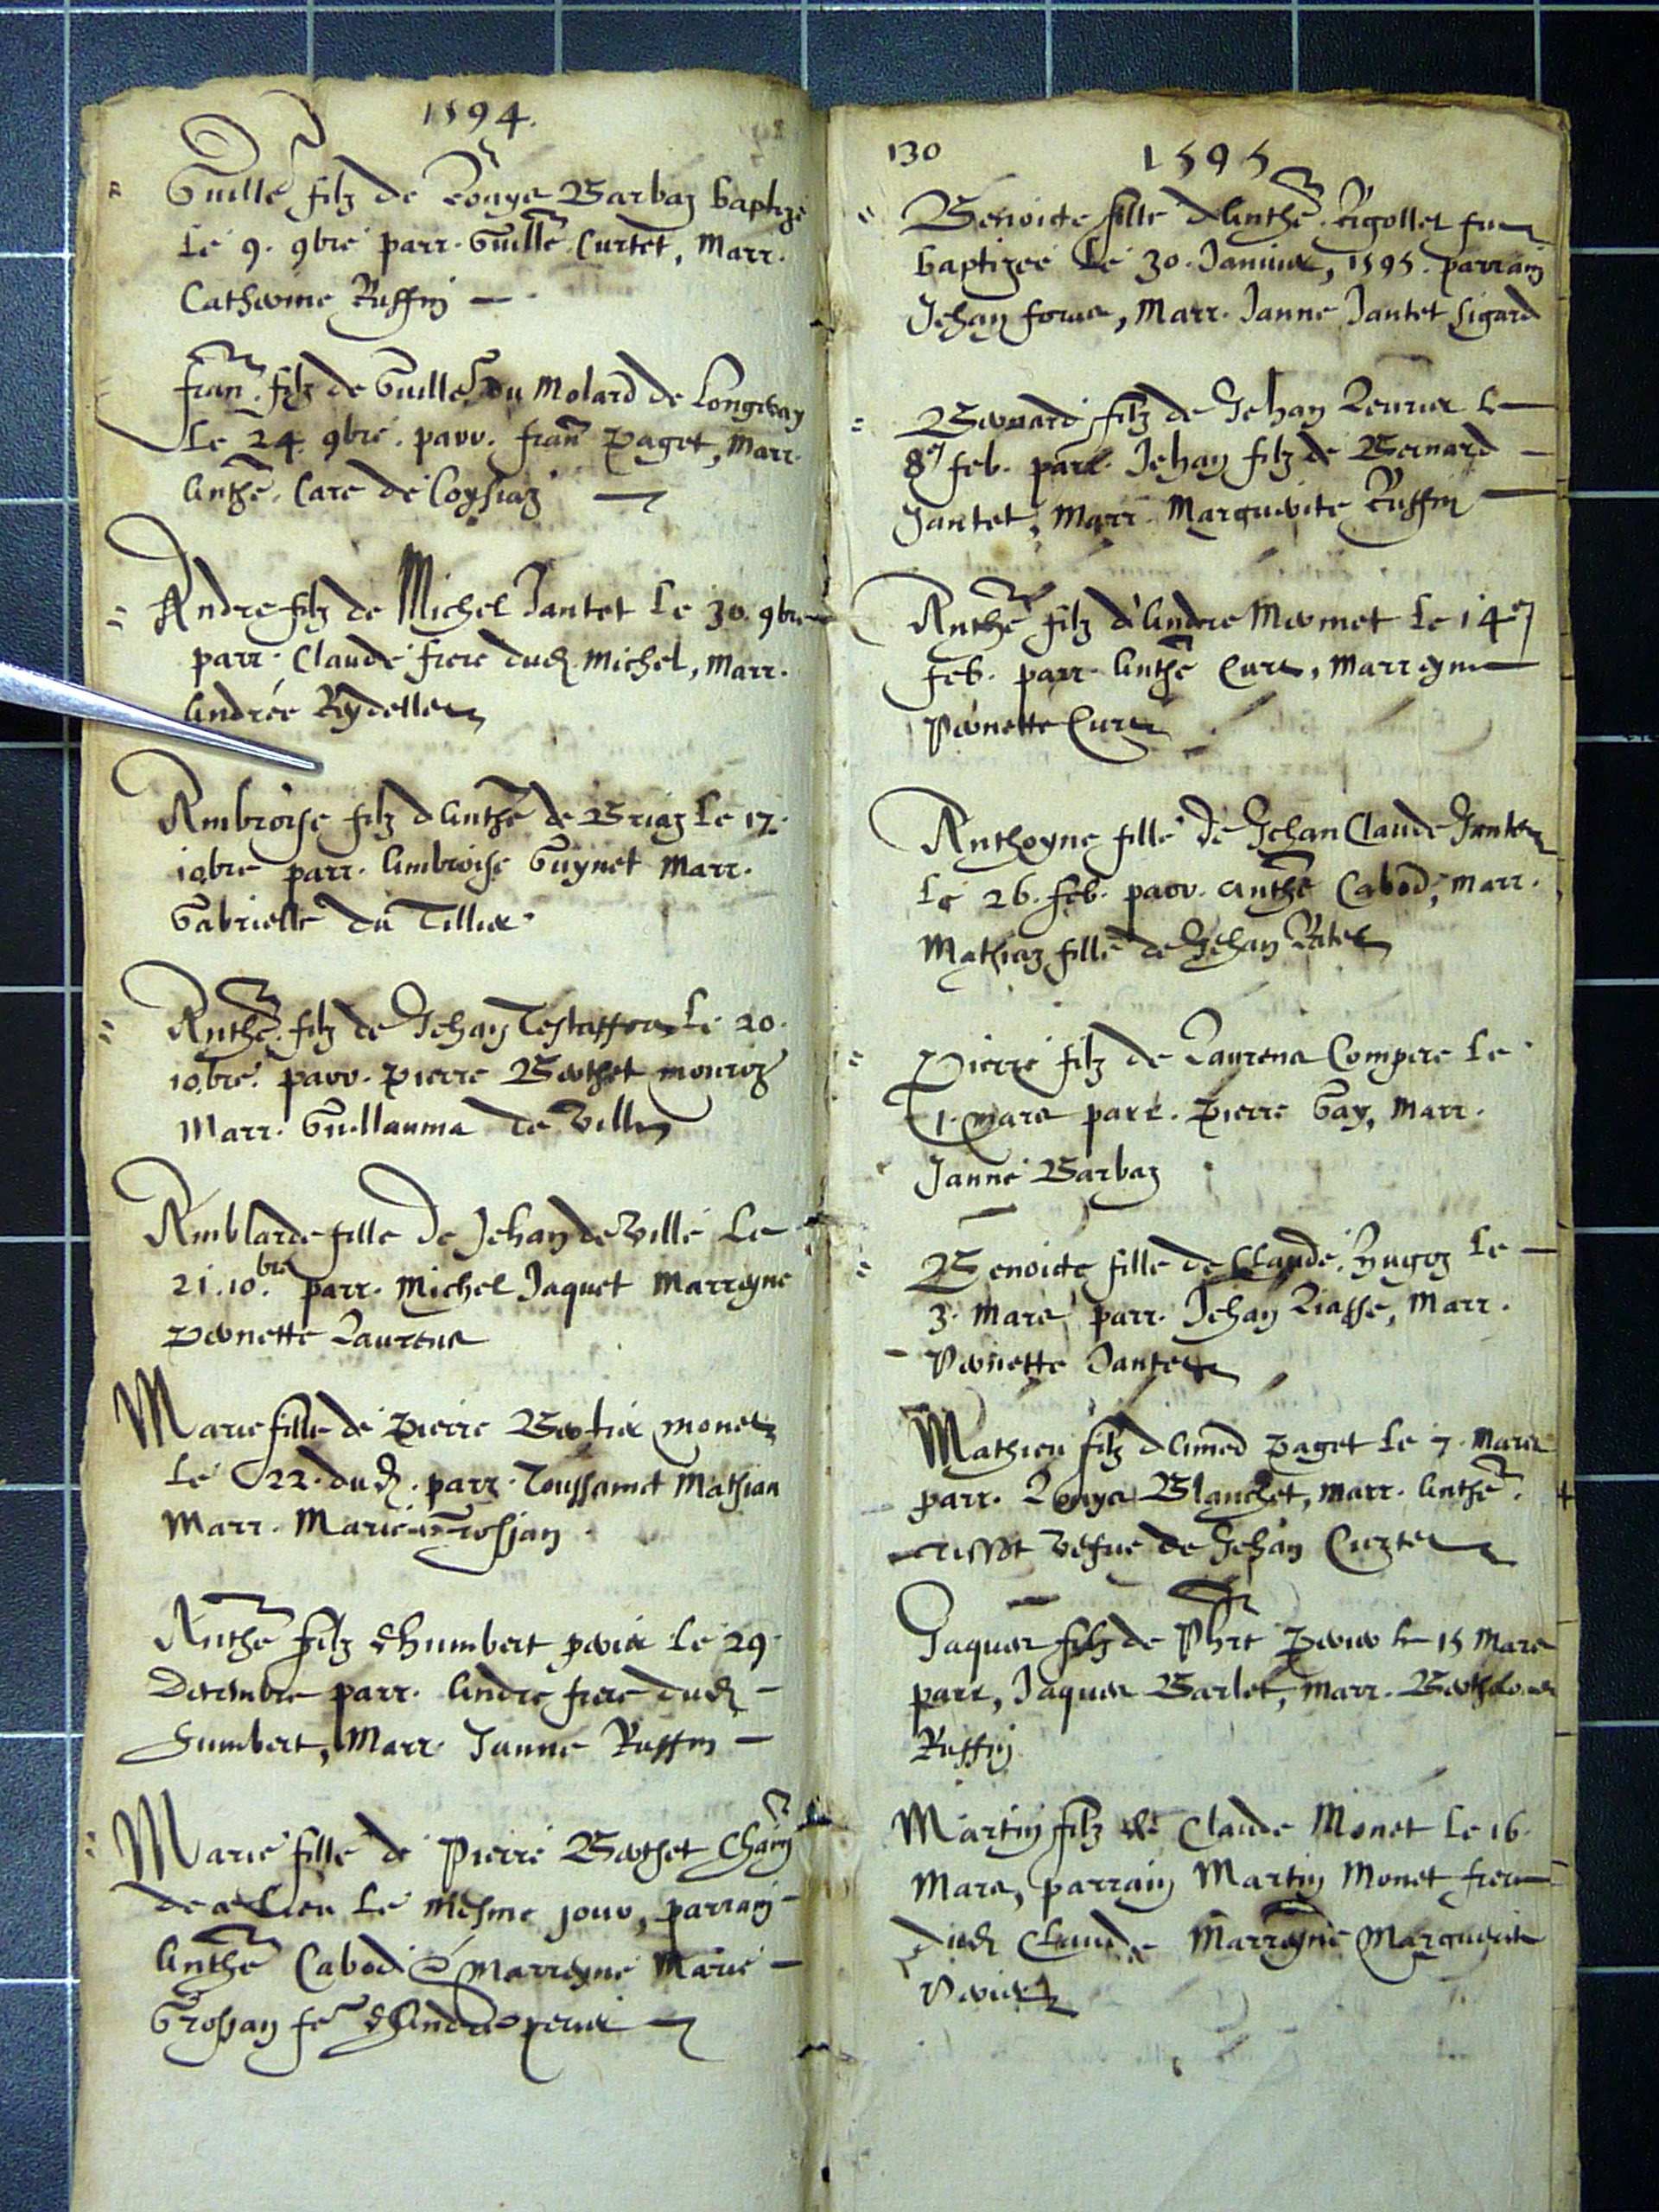 1594.
Guille filz de Louys Barbaz baptizé
Le 9. 9bre parr. Guille Curtet, Marr.
Catherine Ruffin
Fran. filz de Guille du Molard de Longeray
Le 24. 9bre. parr. Fran Paget, Marr.
Anthe. Care de Coysiaz
Andre filz de Michel Jantet Le 30. 9bre
parr. Claude frere dud. Michel, Marr.
Andrée Rydellet
Ambroise filz d'Anthe de Briaz Le 17.
10bre parr. Ambroise Guynet Marr.
Gabrielle du Tillier
Anthe. filz de Jehan Le 20.
10bre. parr. Pierre Berthet
Marr. Guillauma de Ville
Amblarde fille de Jehan de Ville Le
21. 10.bre parr. Michel Jaquet Marreyne
Pernette Laurens
Marie fille de Pierre Bertier Monet
Le 22. dud. parr. Toussainct Mathian
Marr. Marie Grosjan
Anthe filz d'humbert perier Le 29
Decembre parr. Andre frere dud
humbert, Marr. Janne Ruffin
Marie fille de Pierre Berthet
Le mesme jour, parrain
Anthe Cabod & Marreyne Marie
Grosjan fe d'Andre perier
130
1595
Benoite fille d'Anthe. Rigollet fut
baptizée Le 30. Janvier, 1595. parrain
Jehan, Marr. Janne Jantet Ligard
Bernard filz de Jehan Le
8e feb. parr. Jehan filz de Bernard
Jantet, Marr. Marguerite Ruffin
Anthe filz d'Andre Mermet Le 14e
feb. parr. Anthe Curt, Marreyne
Pernette Curt
Anthoyne fille de Jehan Claude Jantet
Le 26. feb. parr. Anthe Cabod, Marr.
Mathiaz fille de Jehan
Pierre filz de Laurens Compere Le
1. Mars parr. Pierre Gay, Marr.
Janne Barbaz
Benoite fille de Claude Hugoz Le
3. Mars parr. Jehan Liasse, Marr.
Pernette Jantet
Mathieu filz d'Amed Paget Le 7. Mars
parr. Louys Blanchet, Marr. Anthe.
vefue de Jehan Curtet
Jaques filz de Perier Le 15 Mars
parr, Jaques Barlet, Marr.
Ruffin
Martin filz de Claude Monet Le 16.
Mars, parrain Martin Monet frere
dud Claude Marreyne Marguerite
Perier